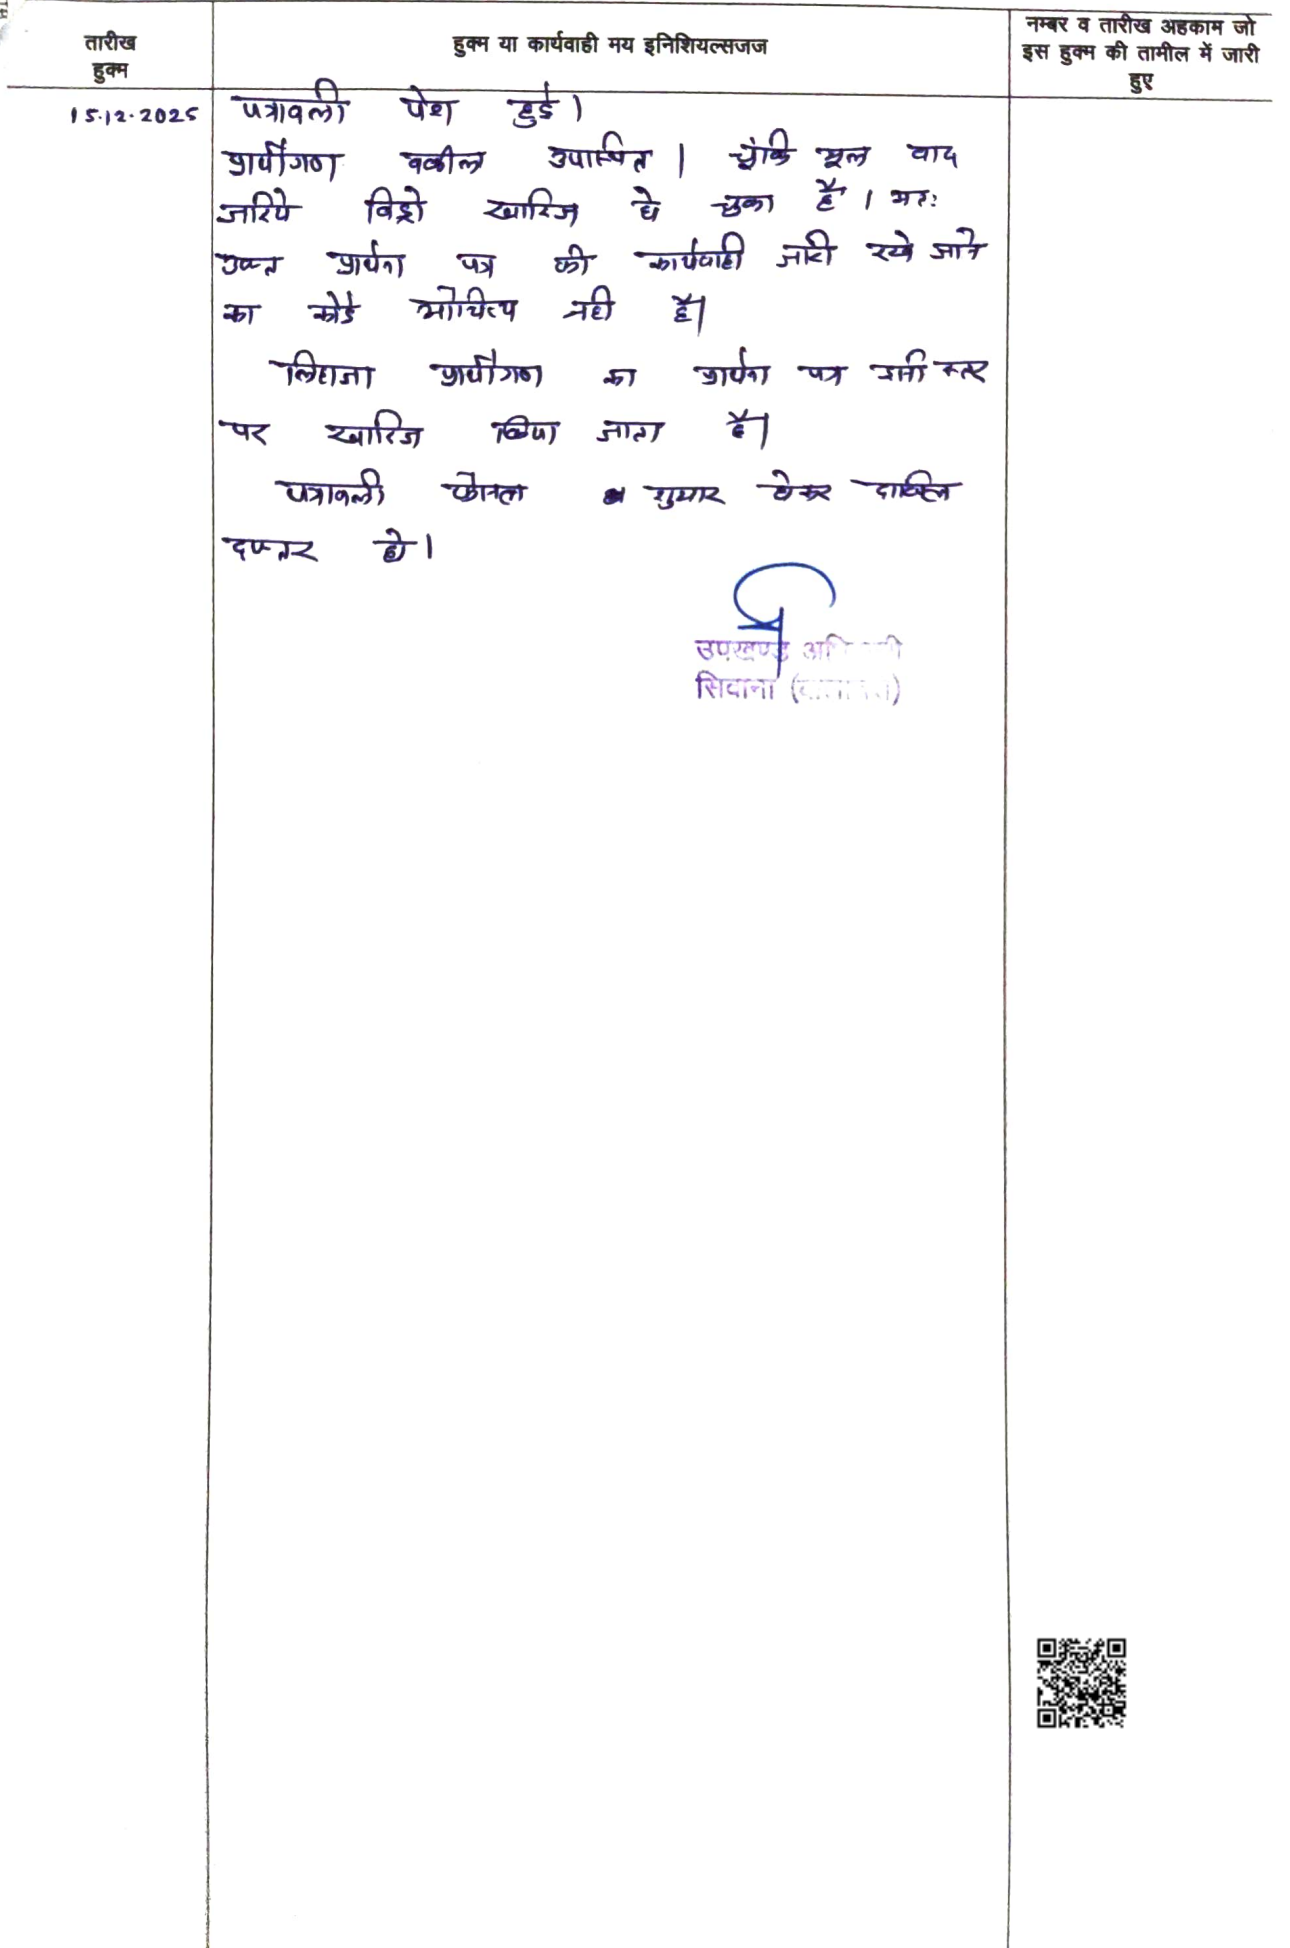 तारीख
हुक्म
हुक्म या कार्यवाही मय इनिशियल्सजज
नम्बर व तारीख अहकाम जो
इस हुक्म की तामील में जारी
हुए
15.12.2025
पत्रावली पेश हुई।
प्रार्थीगण वकील उपस्थित। चूंकि मूल वाद
जरिये विड्रो खारिज हो चुका है। अतः
उक्त प्रार्थना पत्र की कार्यवाही जारी रखे जाने
का कोई औचित्य नही है।
लिहाजा प्रार्थीगण का प्रार्थना पत्र इसी स्तर
पर खारिज किया जाता है।
पत्रावली फैसल शुमार होकर दाखिल
दफ्तर हो।
उपखण्ड
सिवाना